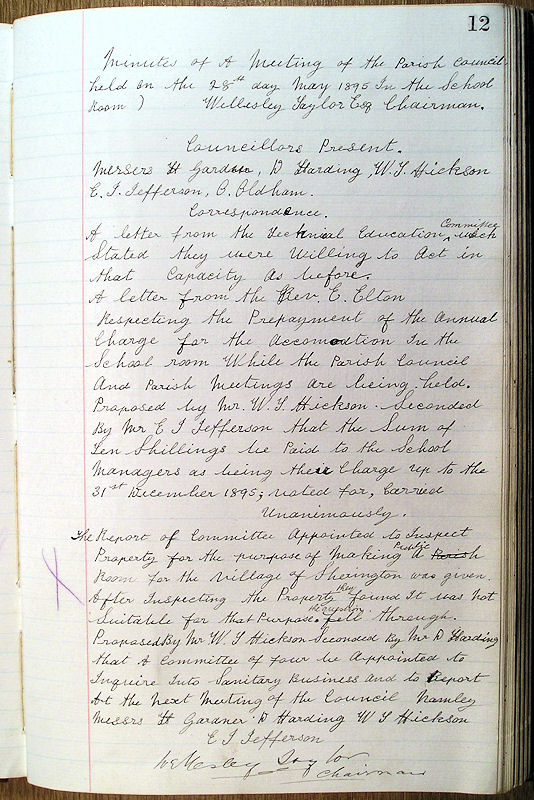 12
Minutes of A Meeting of the Parish Council
held on the 28th day May 1895 In the School
Room ) Wellesley Taylor Esq Chairman.
Councillors Present.
Messers H Gardner, D Harding W. S. Hickson
E. J. Jefferson, C. Oldham.
Correspondence.
A letter from the Technical Education Committee, wich
Stated they were Willing to Act in
that Capacity As before.
A letter from the Rev. E. Elton
Respecting the Prepayment of the Annual
Charge for the Accomodtion In the
School room While the Parish Council
And Parish Meetings are being held.
Proposed by Mr. W. S. Hickson. Seconded
By Mr E J Jefferson that the Sum of
Ten Shillings be Paid to the School
Managers as being their Charge up to the
31st December 1895; voted for, Carried
Unanimously.
The Report of Committee Appointed to Inspect
Property for the purpose of Making A Parish Public
Room for the village of Sherington was given.
After Inspecting the Property they found It was Not
Suitable for that Purpose. the question fell through.
Proposed By Mr W. S Hickson Seconded By Mr D Harding
that A Committee of four be Appointed to
Inquire Into Sanitary Business and to Report
At the Next Meeting of the Council Namley
Messrs H Gardner D Harding W S Hickson
E J Jefferson
Wellesley Taylor
Chairman